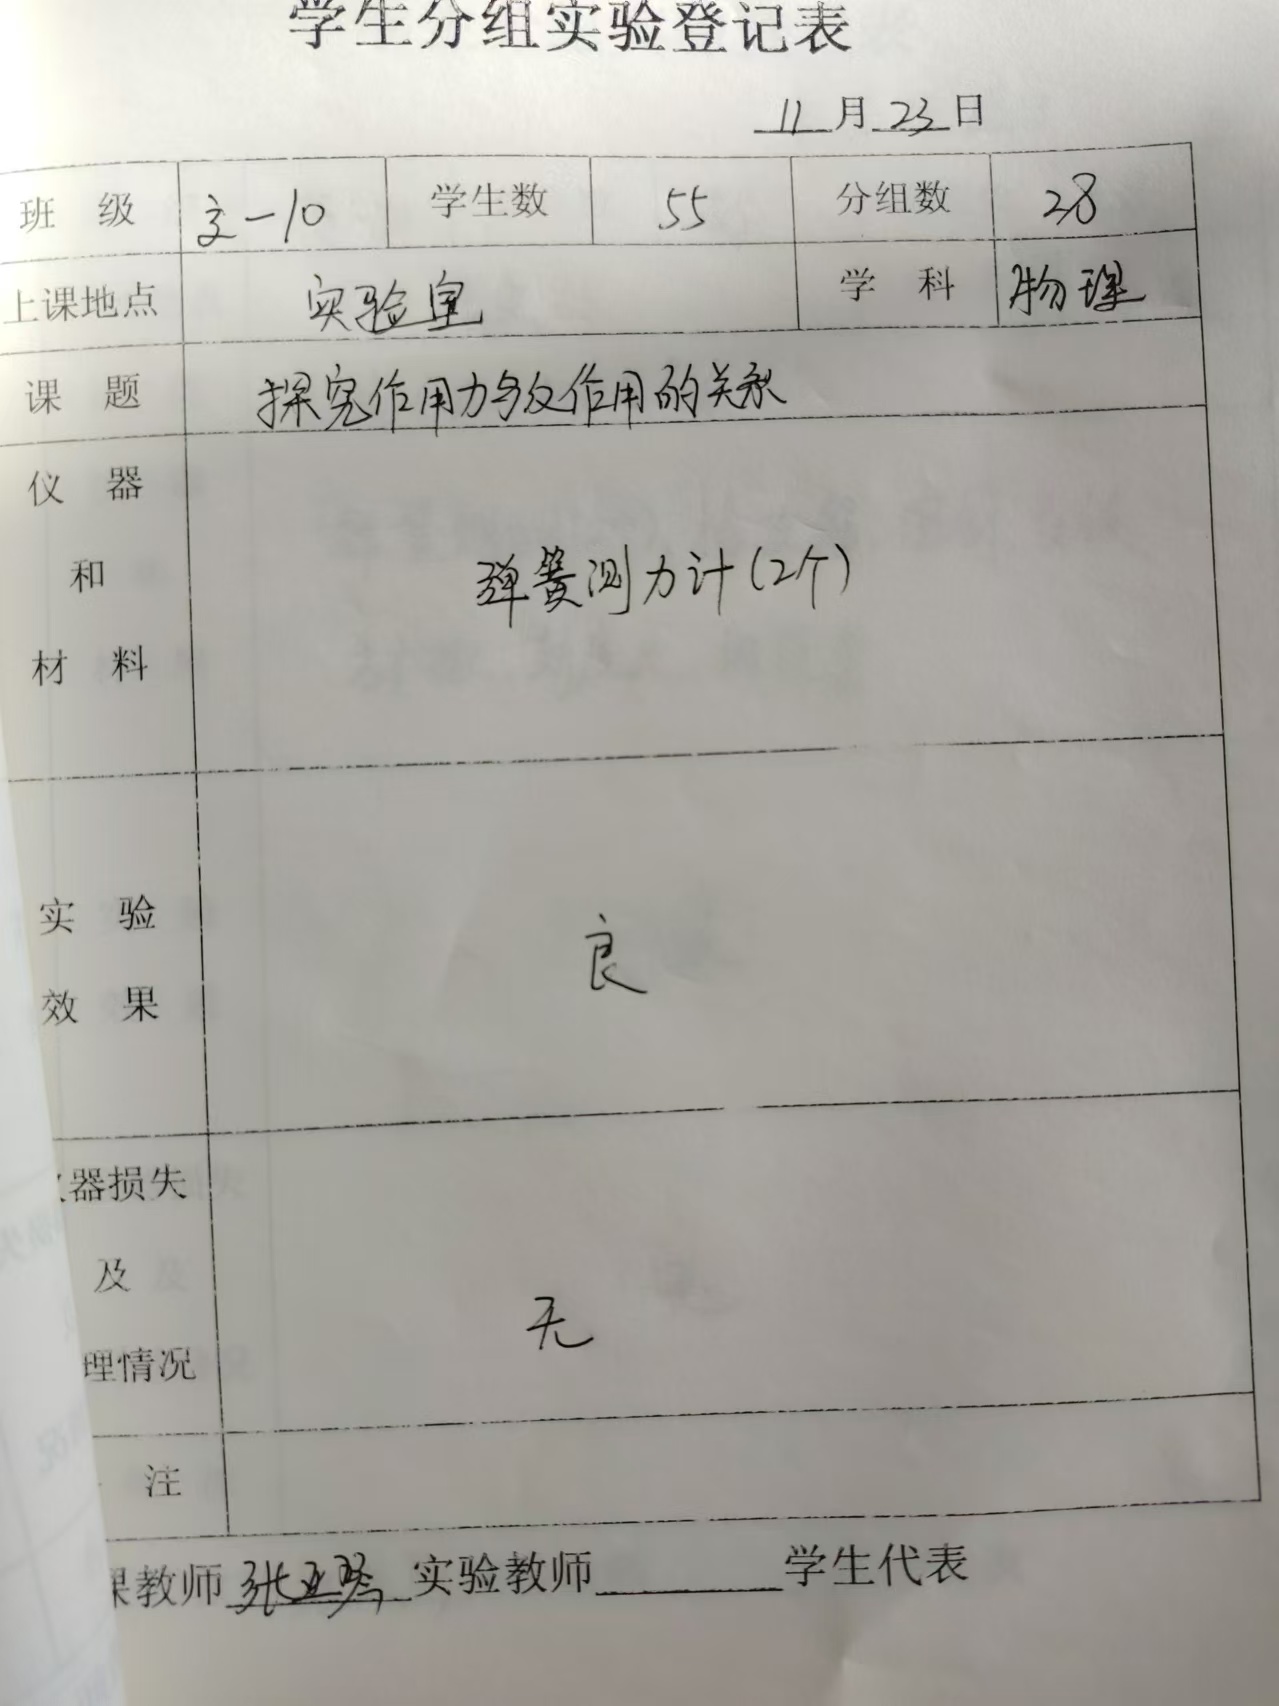 学生分组实验登记表
11月23日
班 级 文-10 学生数 55 分组数 28
上课地点 实验室 学 科 物理
课 题 探究作用力与反作用的关系
仪 器
和
材 料
弹簧测力计(2个)
实 验
效 果
良
器损失
及
理情况
无
注
课教师 张亚琴 实验教师 学生代表